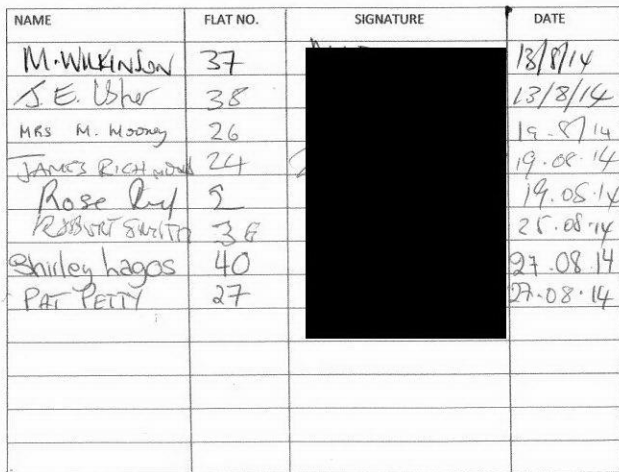 NAME FLAT NO. SIGNATURE DATE
M. WILKINSON 37 13/8/14
J. E. Usher 38 13/8/14
MRS M. Mooney 26 19.8/14
JAMES RICHMOND 24 19.08.14
Rose 2 19.08.14
ROBERT SMITH 36 25.08.14
Shirley Lagos 40 27.08.14
PAT PETTY 27 27.08.14